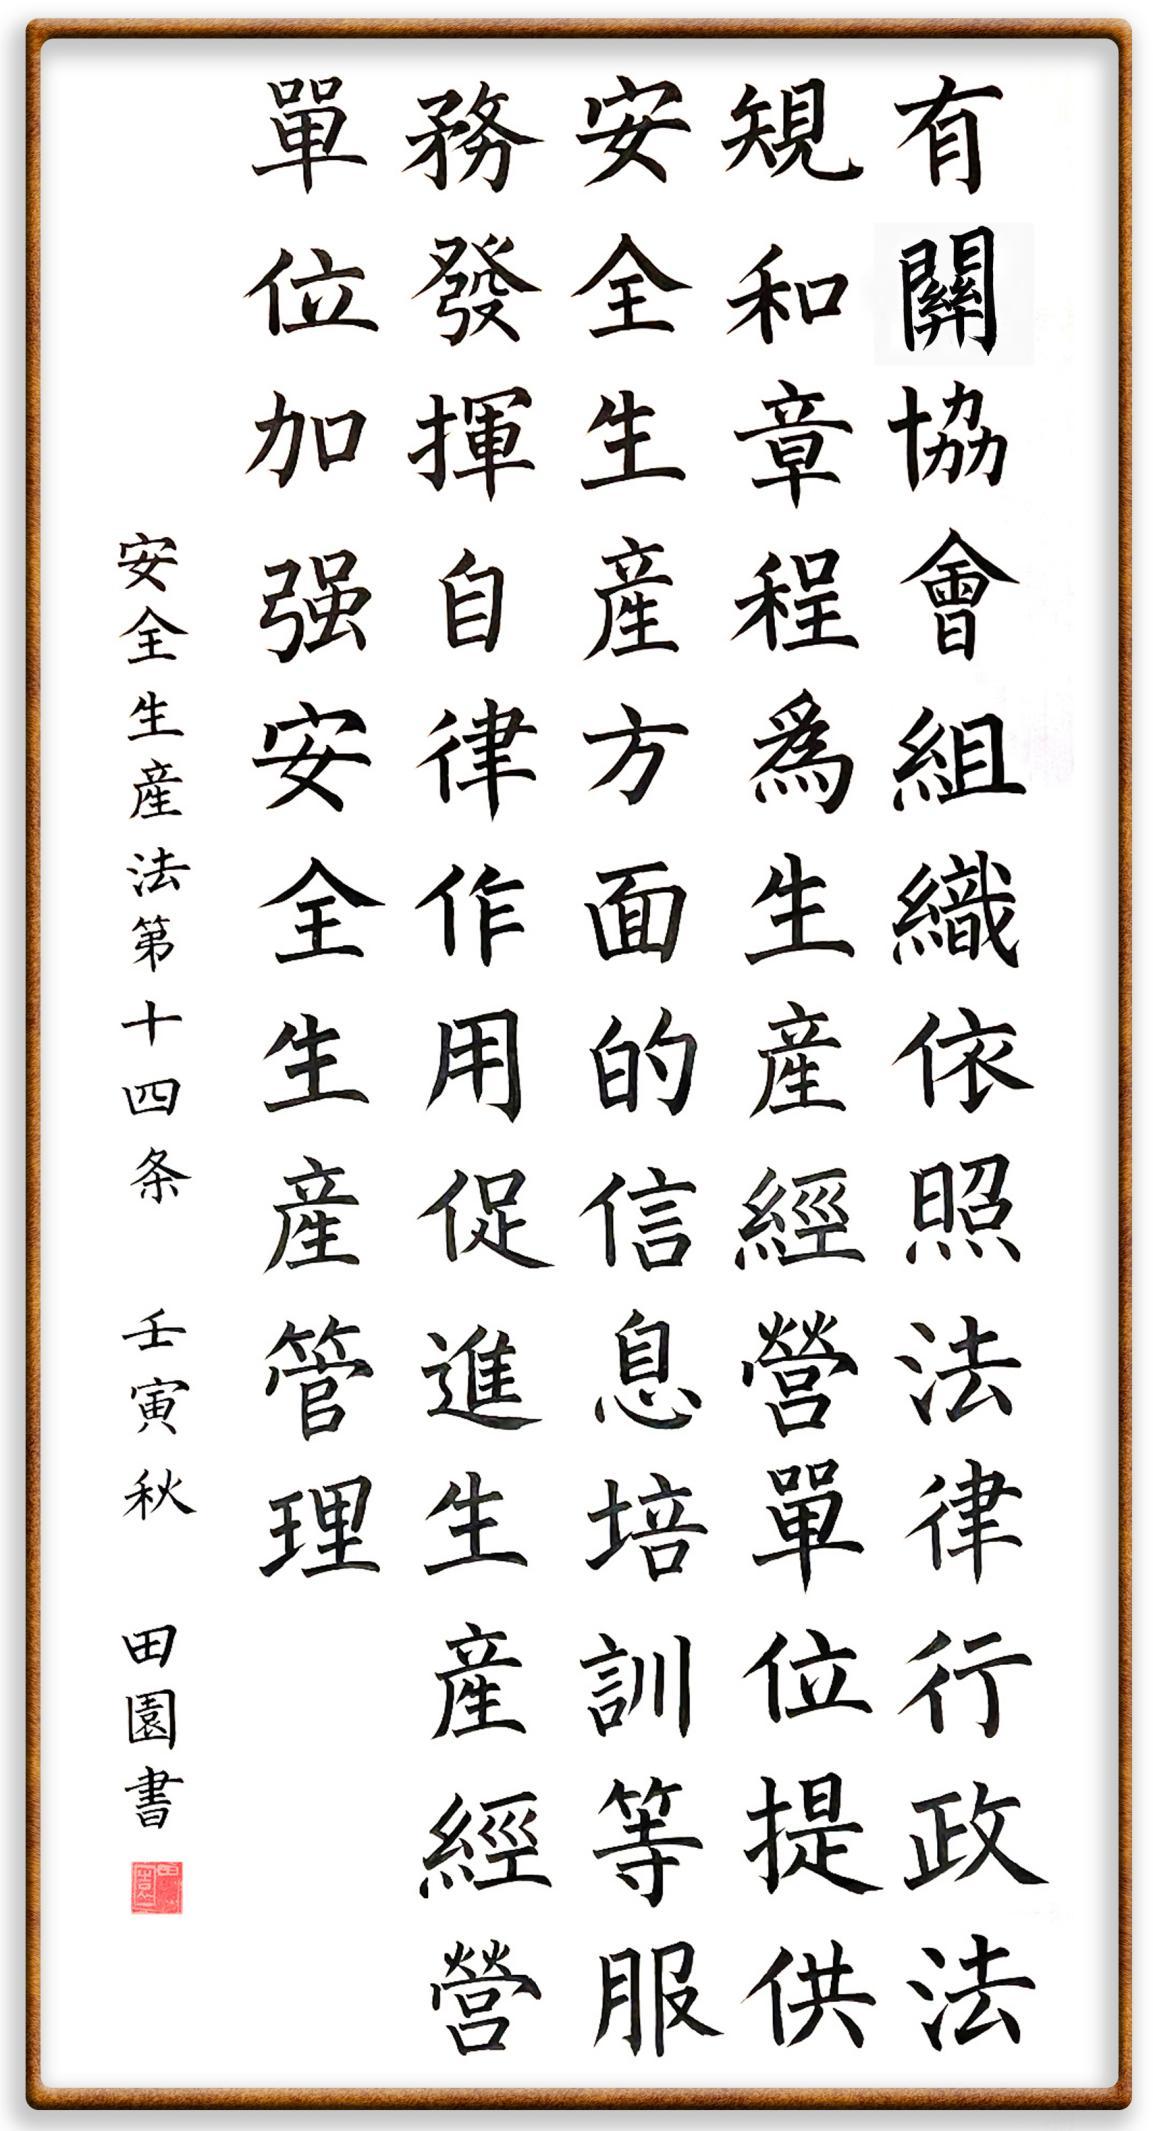 有關協會組織依照法律行政法
規和章程爲生産經營單位提供
安全生産方面的信息培訓等服
務發揮自律作用促進生産經營
單位加强安全生産管理
安全生産法第十四条 壬寅秋 田園書